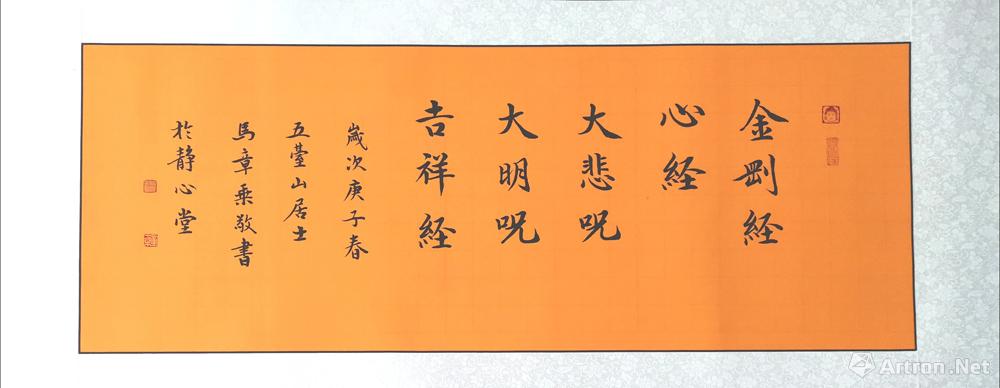 金剛経
心経
大悲呪
大明呪
吉祥経
歲次庚子春
五臺山居士
馬章乘敬書
於靜心堂
Artron.Net